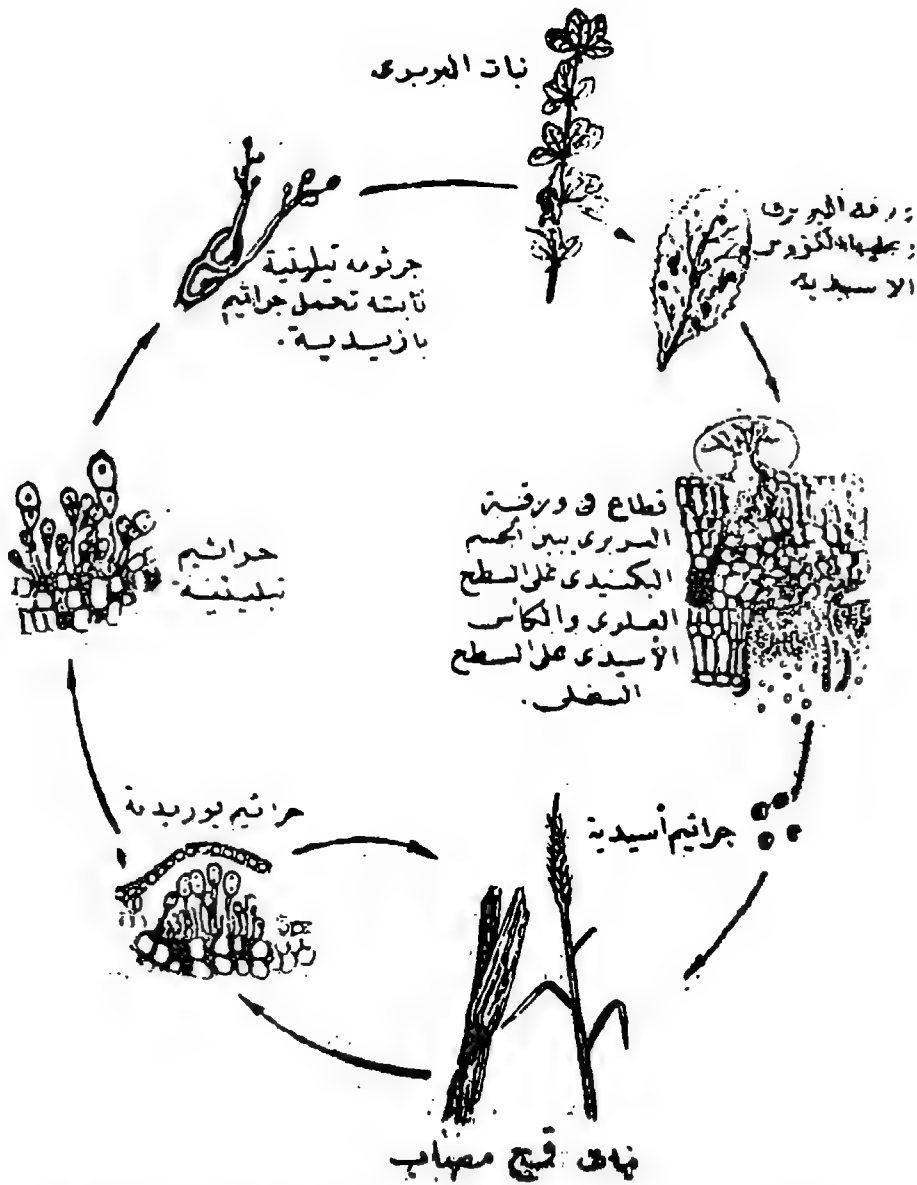 نبات البربرى
ورقة البربرى
وعليها الكؤوس
الاسيدية
جرثومه تيليتية
نابته تحمل جراثيم
بازيدية.
قطاع فى ورقة
البربرى يبين الجسم
البكنيدى على السطح
العلوى والكأس
الأسيدى على السطح
السفلى.
جراثيم
تيليتية
جراثيم يوريدية
جراثيم أسيدية
نبات قمح مصاب